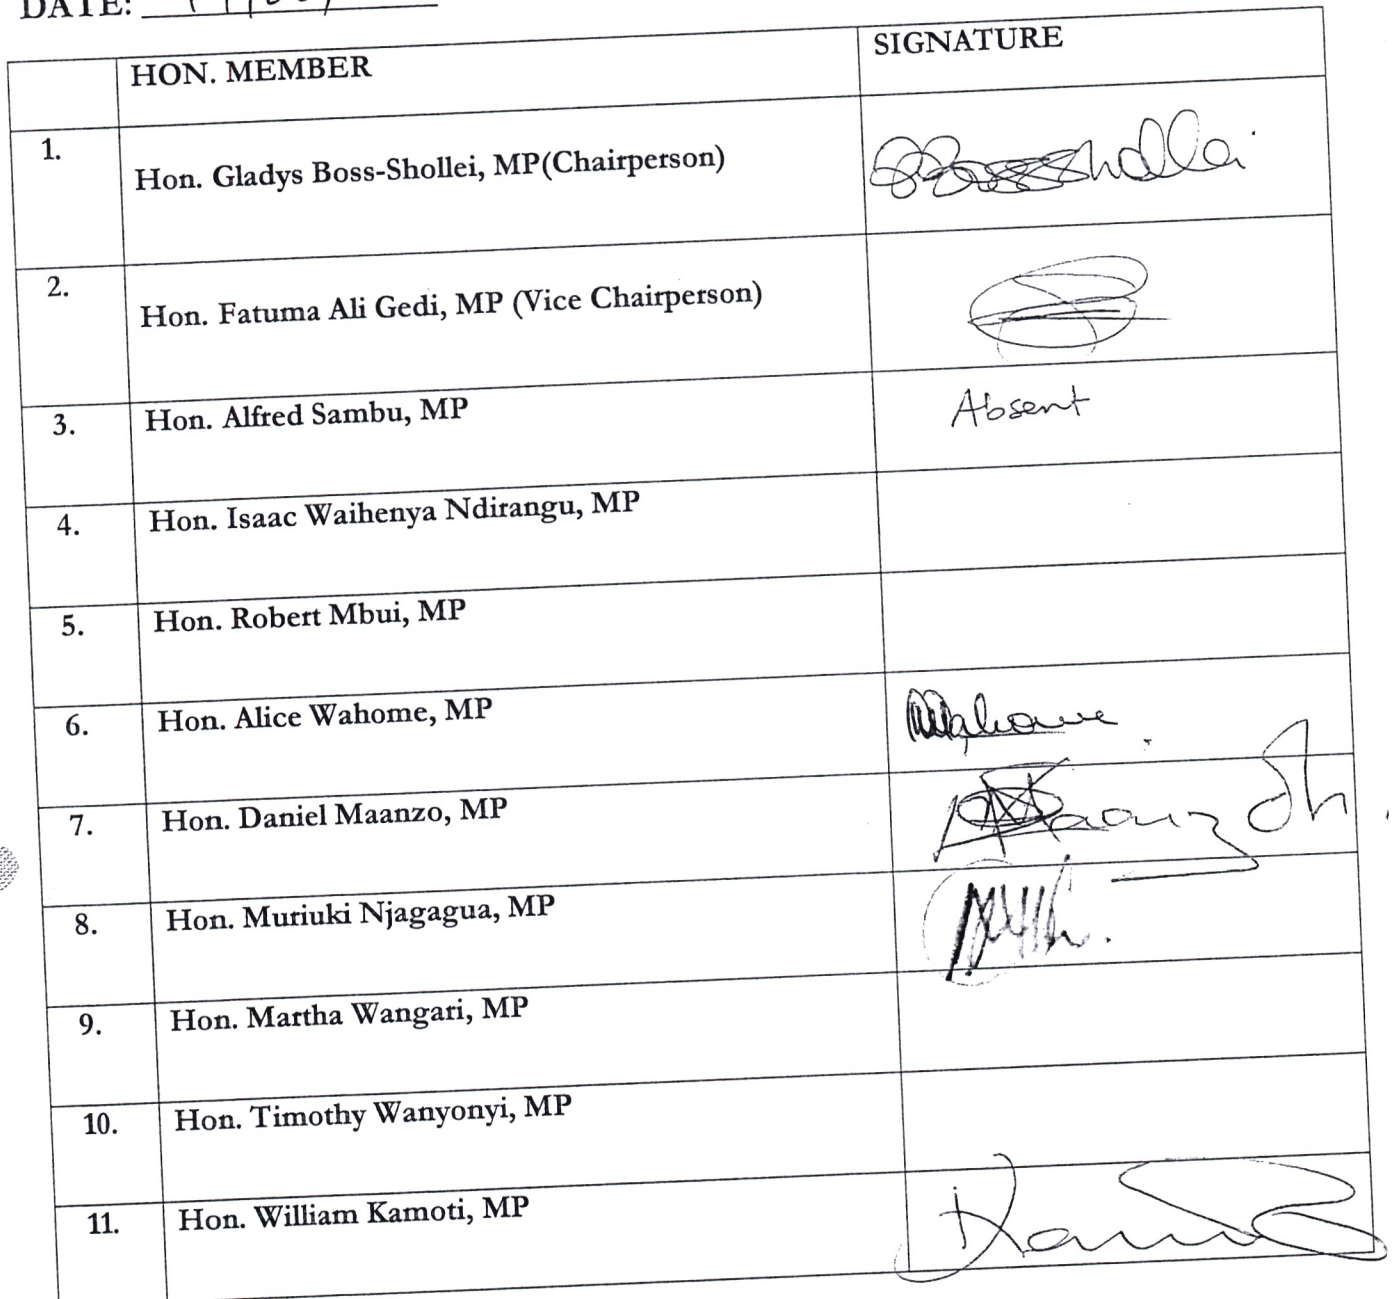 DATE:
HON. MEMBER SIGNATURE
1. Hon. Gladys Boss-Shollei, MP(Chairperson)
2. Hon. Fatuma Ali Gedi, MP (Vice Chairperson)
3. Hon. Alfred Sambu, MP Absent
4. Hon. Isaac Waihenya Ndirangu, MP
5. Hon. Robert Mbui, MP
6. Hon. Alice Wahome, MP
7. Hon. Daniel Maanzo, MP
8. Hon. Muriuki Njagagua, MP
9. Hon. Martha Wangari, MP
10. Hon. Timothy Wanyonyi, MP
11. Hon. William Kamoti, MP